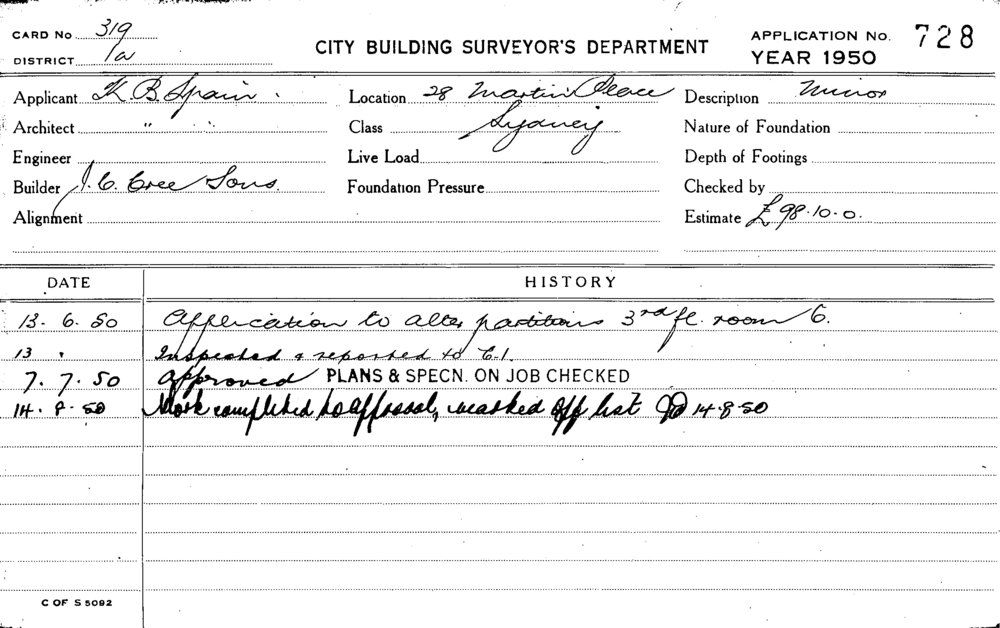 CARD No 319
DISTRICT 1a
CITY BUILDING SURVEYOR'S DEPARTMENT
APPLICATION No. 728
YEAR 1950
Applicant K. B. Spain. Location 28 Martin Place Description Minor
Architect " " Class Sydney Nature of Foundation
Engineer Live Load Depth of Footings
Builder J. C. Cree Sons. Foundation Pressure Checked by
Alignment Estimate £98.10.0.
DATE HISTORY
13. 6. 50 Application to alter partitions 3rd fl. room 6.
13 " Inspected & reported to C.I.
7. 7. 50 approved PLANS & SPECN. ON JOB CHECKED
14. 8. 50 Work completed to approval, marked off list 14.8.50
C OF S 5092